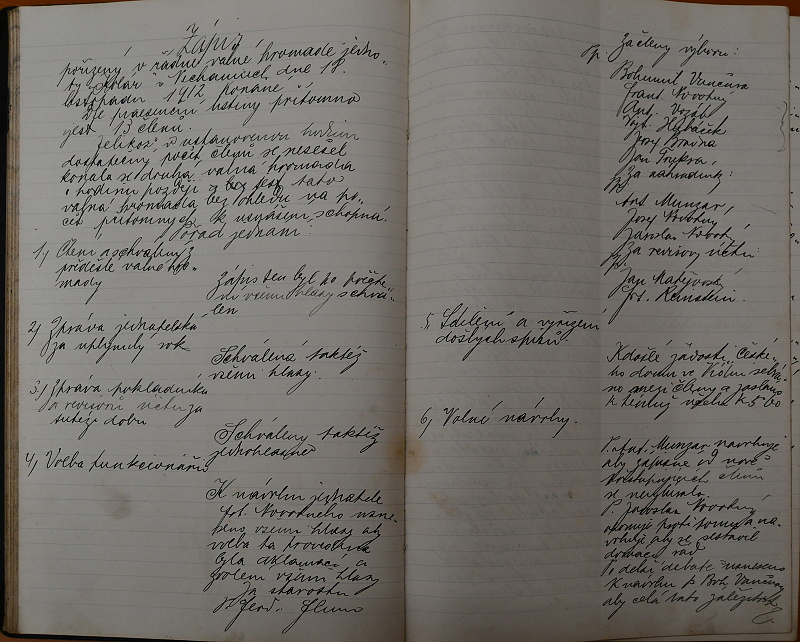 Zápis
pořízený v řádné valné hromadě jedno-
ty v Nechanicích, dne 18.
listopadu 1912 konané
Dle praesenční listiny přítomno
jest 13 členů.
Jelikož v ustanovenou hodinu
dostatečný počet členů se nesešel
konala se druhá valná hromada
o hodinu později a bez tato
valná hromada bez ohledu na po-
čet přítomných k usnášení schopná.
Pořad jednání:
1, Čtení a schválení
předešlé valné hro-
mady
Zápis ten byl po přečte-
ní všemi hlasy schvá-
len
2, Zpráva jednatelská
za uplynulý rok
Schválena taktéž
všemi hlasy.
3, Zpráva pokladníka
a revisorů účtů za
tutéž dobu
Schváleny taktéž
jednohlasně
4, Volba funkcionářů
K návrhu jednatele
Fr. Novotného usne-
šeno všemi hlasy aby
volba ta provedena
byla aklamací, a
zvolem všemi hlasy
Za starostu
Ferd.
Za členy výboru:
pp. Bohumil Vančura
Frant. Novotný
Ant.
Vojt.
Josef
Jan
Za náhradníky:
Ant. Munzar,
Josef Novotný
Jaroslav Novotný
Za revisory účtů
pp.
Jan Matějovský
Fr.
5. Sdělení a vyřízení
došlých spisů
K došlé žádosti České-
ho domu ve Vídni sebrá-
no mezi členy a zasláno
k témuž účelu K 5·60
6, Volné návrhy.
P. Ant. Munzar navrhuje
aby zápisné od nově
přistupujících členů
se
P. Jaroslav Novotný
proti tomu a na-
vrhuje aby se sestavil
domácí řád
Po delší debatě usneseno
k návrhu p. Boh. Vančury
aby celá tato záležitost